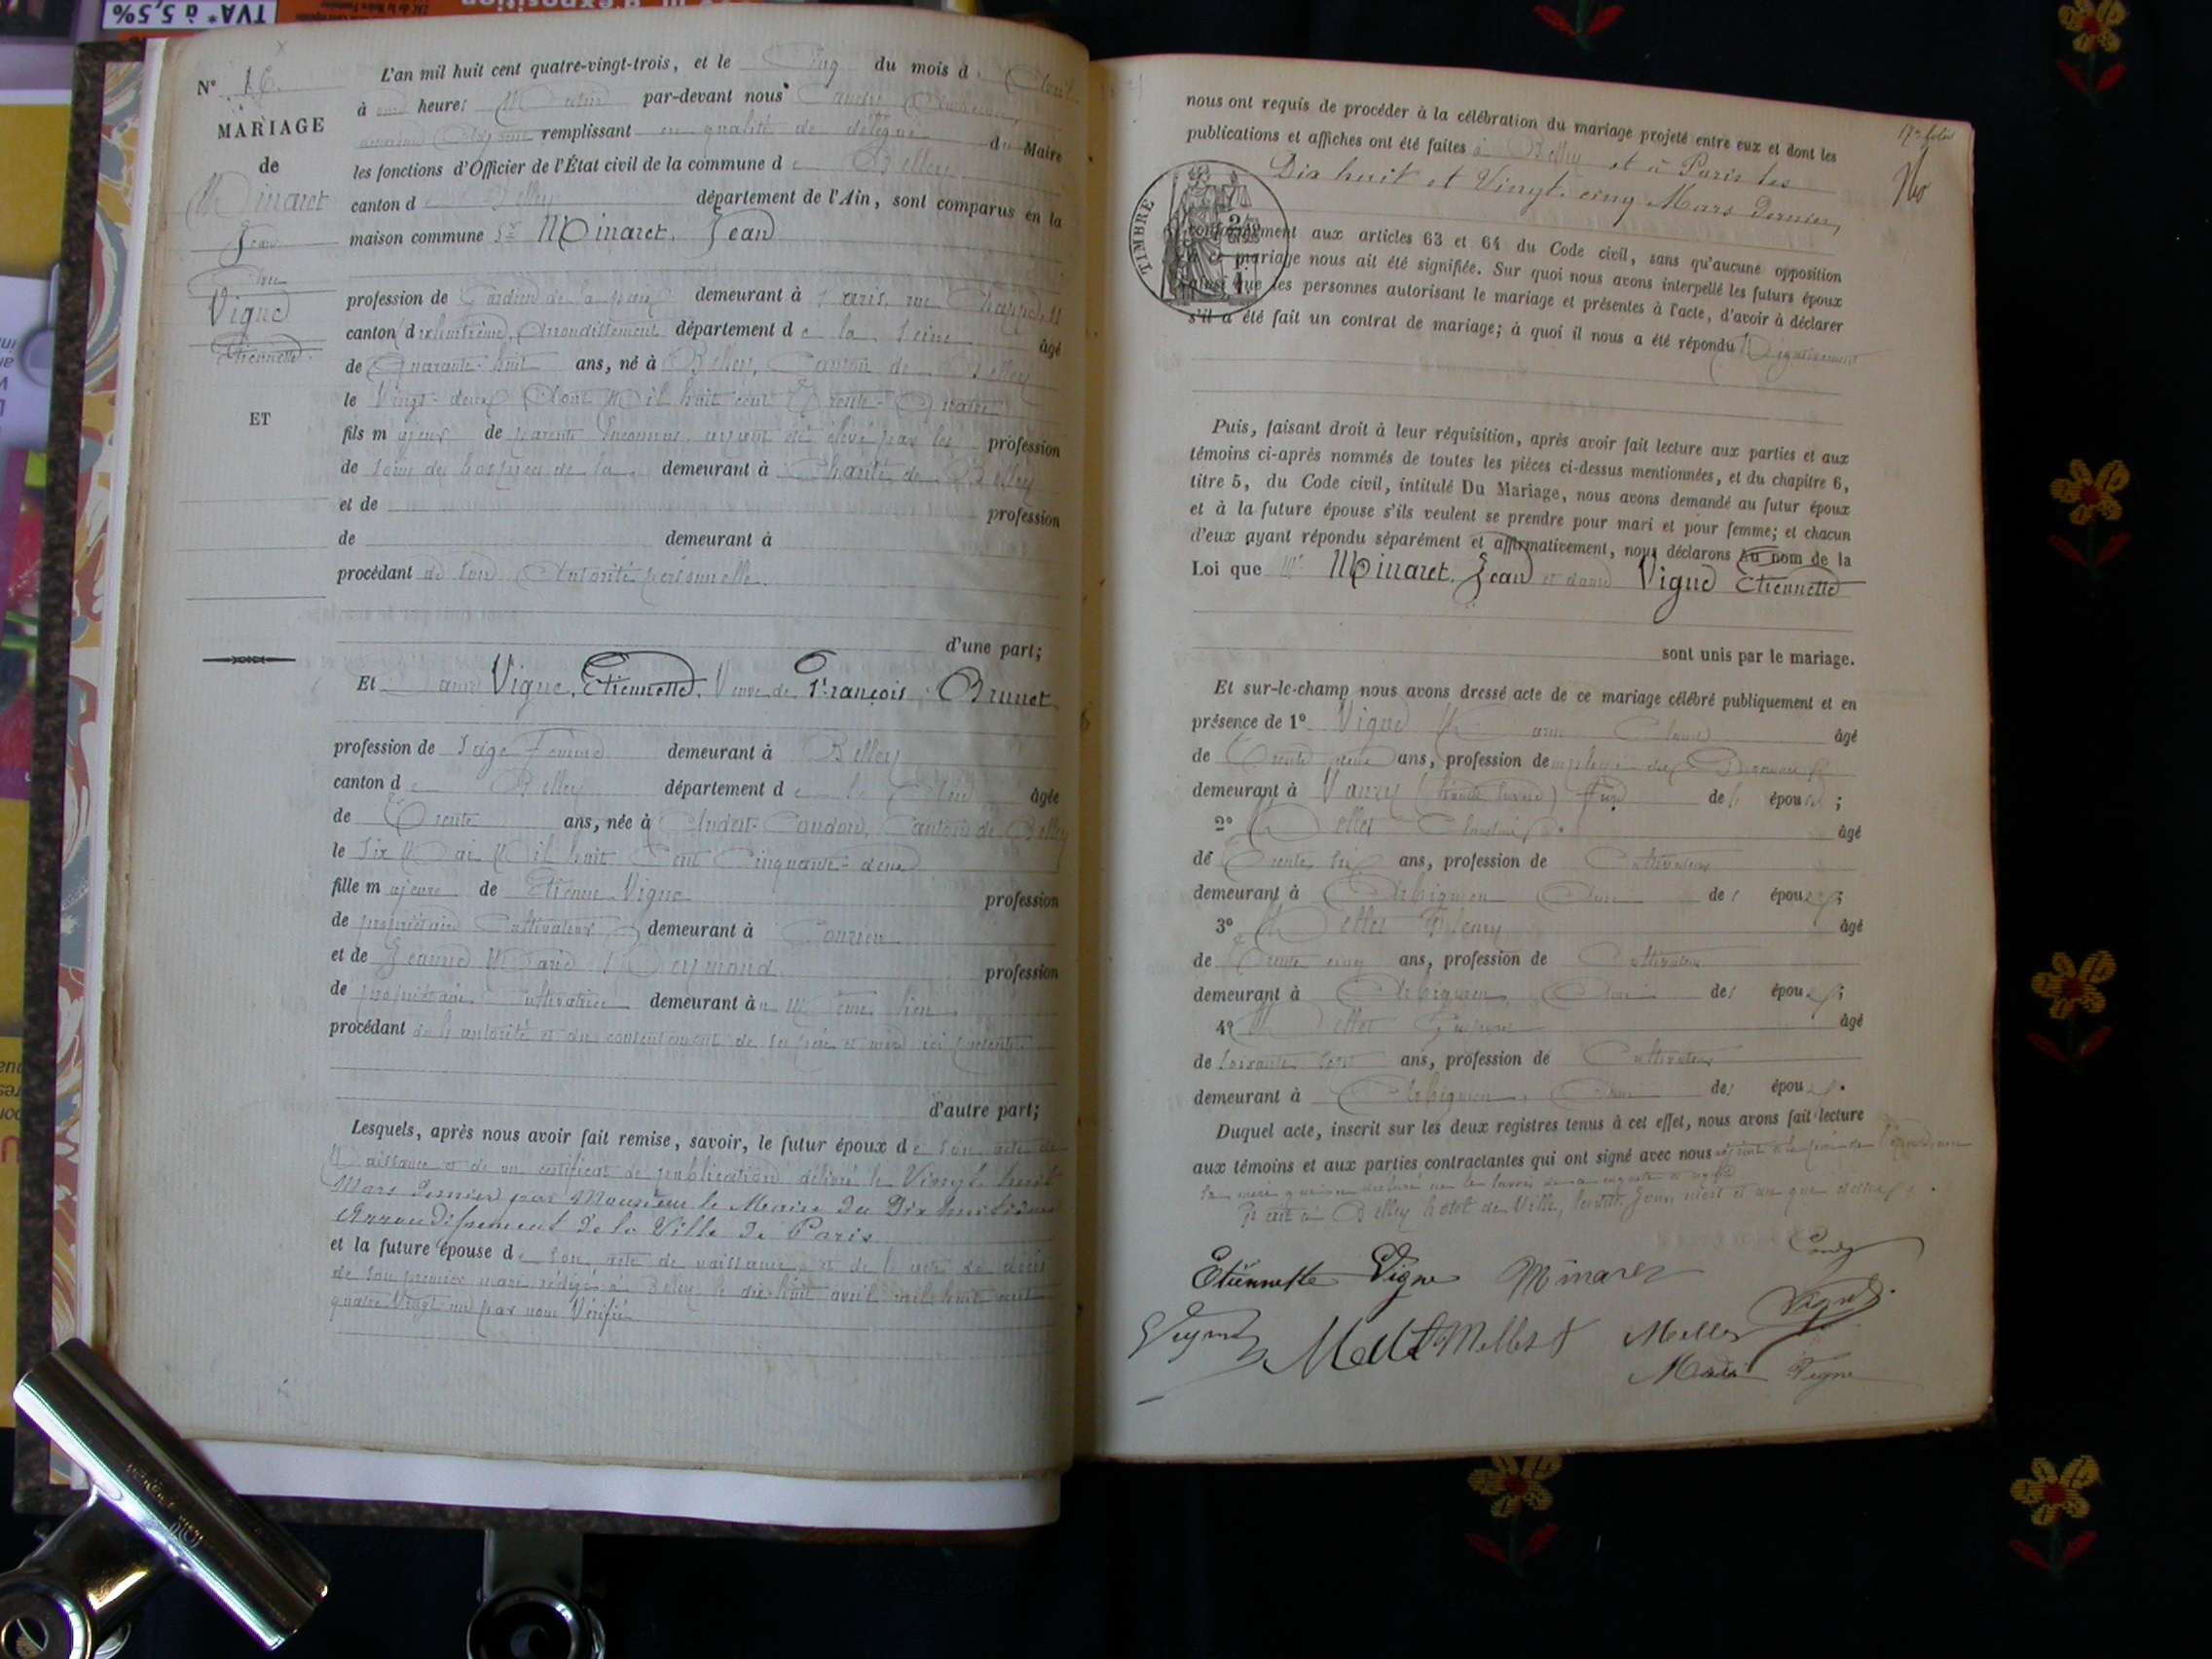 TVA* à 5,5%
N° 16
MARIAGE
de
Minaret
Jean
Vigne
Etiennette
ET
L'an mil huit cent quatre-vingt-trois, et le Cinq du mois d'Avril
à heures Matin par-devant nous
remplissant en qualité de délégué du Maire
les fonctions d'Officier de l'État civil de la commune de Belley
canton de Belley département de l'Ain, sont comparus en la
maison commune Sr Minaret, Jean
profession de Gardien de la paix demeurant à Paris, rue Chappe, 11
canton dixhuitième, Arrondissement département de la Seine âgé
de Quarante-huit ans, né à Belley, Canton de Belley
le Vingt-deux Août Mil huit cent Trente-Quatre
fils majeur de parents Inconnus, ayant été élevé par les profession
de soins des hospices de la demeurant à Charité de Belley
et de profession
de demeurant à
procédant de son Autorité personnelle.
d'une part;
Et dame Vigne, Etiennette, Veuve de François Brunet
profession de Sage Femme demeurant à Belley
canton de Belley département de l'Ain âgée
de Trente ans, née à Andert-Condon, Canton de Belley
le Six Mai Mil huit Cent Cinquante-deux
fille majeure de Etienne Vigne profession
de propriétaire Cultivateur demeurant à Conzieu
et de Jeanne Marie Reymond profession
de propriétaire Cultivatrice demeurant au Même lieu
procédant de l'autorité et du consentement de ses père et mère ici présents
d'autre part;
Lesquels, après nous avoir fait remise, savoir, le futur époux de son acte de
Naissance et de un certificat de publication délivré le Vingt huit
Mars dernier par Monsieur le Maire du Dix huitième
Arrondissement de la Ville de Paris
et la future épouse de son acte de naissance et de l'acte de décès
de son premier mari rédigé à Belley le dix-huit avril mil huit cent
quatre Vingt un par nous Vérifié
17e folio
nous ont requis de procéder à la célébration du mariage projeté entre eux et dont les
publications et affiches ont été faites à Belley et à Paris les
Dix huit et Vingt-cinq Mars dernier,
TIMBRE
conformément aux articles 63 et 64 du Code civil, sans qu'aucune opposition
à ce mariage nous ait été signifiée. Sur quoi nous avons interpellé les futurs époux
ainsi que les personnes autorisant le mariage et présentes à l'acte, d'avoir à déclarer
s'il a été fait un contrat de mariage; à quoi il nous a été répondu Négativement
Puis, faisant droit à leur réquisition, après avoir fait lecture aux parties et aux
témoins ci-après nommés de toutes les pièces ci-dessus mentionnées, et du chapitre 6,
titre 5, du Code civil, intitulé Du Mariage, nous avons demandé au futur époux
et à la future épouse s'ils veulent se prendre pour mari et pour femme; et chacun
d'eux ayant répondu séparément et affirmativement, nous déclarons Au nom de la
Loi que Mr Minaret, Jean et dame Vigne Etiennette
sont unis par le mariage.
Et sur-le-champ nous avons dressé acte de ce mariage célébré publiquement et en
présence de 1° Vigne âgé
de Trente ans, profession de employé des
demeurant à de l'épouse;
2° Mellet âgé
de Trente six ans, profession de Cultivateur
demeurant à Arbignieu Ain des époux;
3° Mellet Rémy âgé
de Trente cinq ans, profession de Cultivateur
demeurant à Arbignieu, Ain des époux;
4° Mellet âgé
de Soixante sept ans, profession de Cultivateur
demeurant à Arbignieu, Ain des époux.
Duquel acte, inscrit sur les deux registres tenus à cet effet, nous avons fait lecture
aux témoins et aux parties contractantes qui ont signé avec nous
Fait à Belley hotel de Ville, les dits Jour mois et an que dessus.
Etiennette Vigne Minaret
Vigne
Mellet Mellet Mellet
Vigne